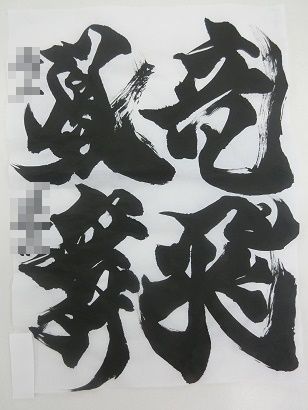 竜飛
鳳舞